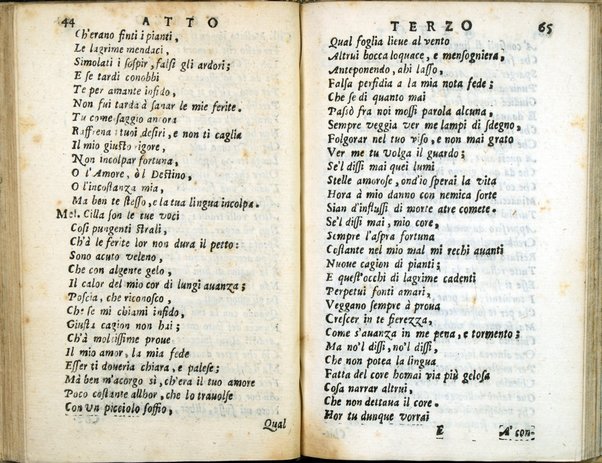 44 ATTO
Ch'erano finti i pianti,
Le lagrime mendaci,
Simolati i sospir, falsi gli ardori;
E se tardi conobbi
Te per amante infido,
Non fui tarda à sanar le mie ferite.
Tu come saggio ancora
Raffrena i tuoi desiri, e non ti caglia
Il mio giusto rigore,
Non incolpar fortuna,
O l'Amore, ò l Destino,
O l'incostanza mia,
Ma te stesso, e la tua lingua incolpa.
Mel. Cilla son le tue voci
Così pungenti strali,
Ch'à le ferite lor non dura il petto:
Sono acuto veleno,
Che con algente gelo,
Il calor del mio cor di lungi auanza;
Poscia, che riconosco,
Che se mi chiami infido,
Giusta cagion non hai;
Ch'à moltissime proue
Il mio amor, la mia fede
Esser ti doueria chiara, e palese;
Mà ben m'acorgo sì, ch'era il tuo amore
Poco costante allhor, che lo trauolse
Con un picciolo soffio,
Qual
TERZO 65
Qual foglia lieue al vento
Altrui bocca loquace, e mensogniera,
Anteponendo, ahi lasso,
Falsa perfidia a la mia nota fede;
Che se di quanto mai
Passò fra noi mossi parola alcuna,
Sempre veggia ver me lampi di sdegno,
Folgorar nel tuo viso, e non mai grato
Ver me tu volga il guardo;
Se'l dissi mai quei lumi
Stelle amorose, ond'io sperai la vita
Hora à mio danno con nemica sorte
Sian d'influssi di morte atre comete.
Se'l dissi mai, mio core,
Sempre l'aspra fortuna
Costante nel mio mal mi rechi auanti
Nuoue cagion di pianti;
E quest'occhi di lagrime cadenti
Perpetui fonti amari,
Veggano sempre à proua
Crescer in te fierezza,
Come s'auanza in me pena, e tormento;
Ma no'l dissi, no'l dissi,
Che non potea la lingua
Fatta del core homai via più gelosa
Cosa narrar altrui,
Che non dettaua il core.
Hor tu dunque vorrai
E A' con-